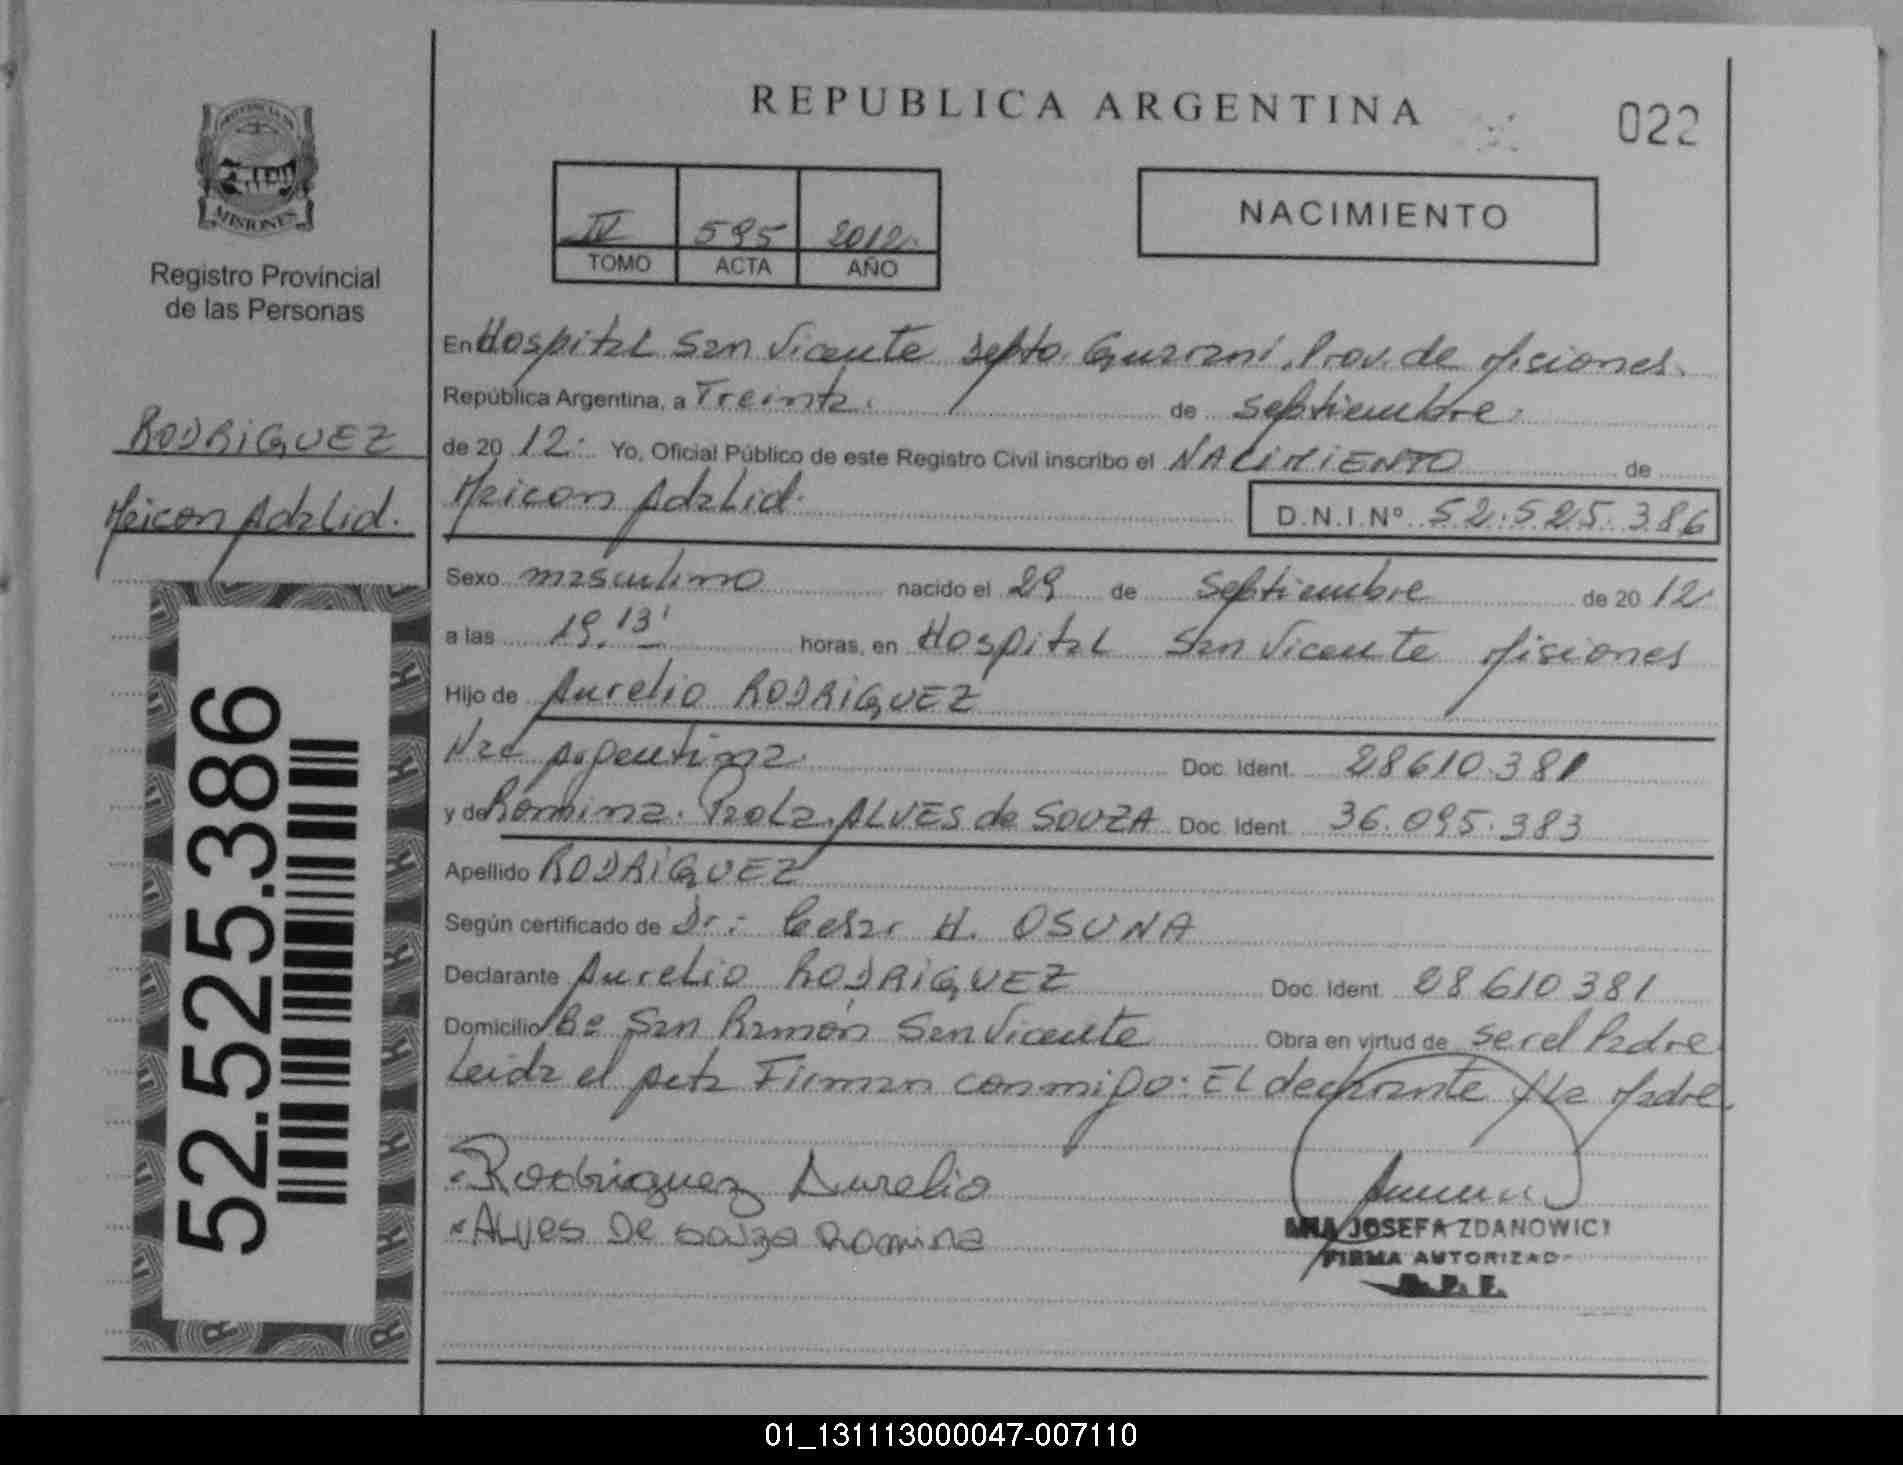 REPUBLICA ARGENTINA
022
PROVINCIA DE
MISIONES
Registro Provincial
de las Personas
RODRIGUEZ
Maicon Adalid.
52.525.386
IV 595 2012.
TOMO ACTA AÑO
NACIMIENTO
En Hospital San Vicente Depto. Guarani. Prov. de Misiones.
República Argentina, a Treinta. de Septiembre.
de 20 12. Yo, Oficial Público de este Registro Civil inscribo el NACIMIENTO de
Maicon Adalid. D.N.I.Nº 52.525.386
Sexo masculino nacido el 29 de Septiembre de 20 12.
a las 19.13' horas, en Hospital San Vicente Misiones
Hijo de Aurelio RODRIGUEZ
Nac Argentina. Doc. Ident. 28610.381
y de Romina. Paola. ALVES de SOUZA Doc. Ident. 36.095.383
Apellido RODRIGUEZ
Según certificado de Dr.: Cesar H. OSUNA
Declarante Aurelio RODRIGUEZ Doc. Ident. 28610381
Domicilio Bº San Ramón San Vicente Obra en virtud de ser el Padre
Leida el Acta Firman conmigo: El declarante y La Madre.
Rodriguez Aurelio
ALVES De souza Romina
ANA JOSEFA ZDANOWICZ
FIRMA AUTORIZAD
01_131113000047-007110